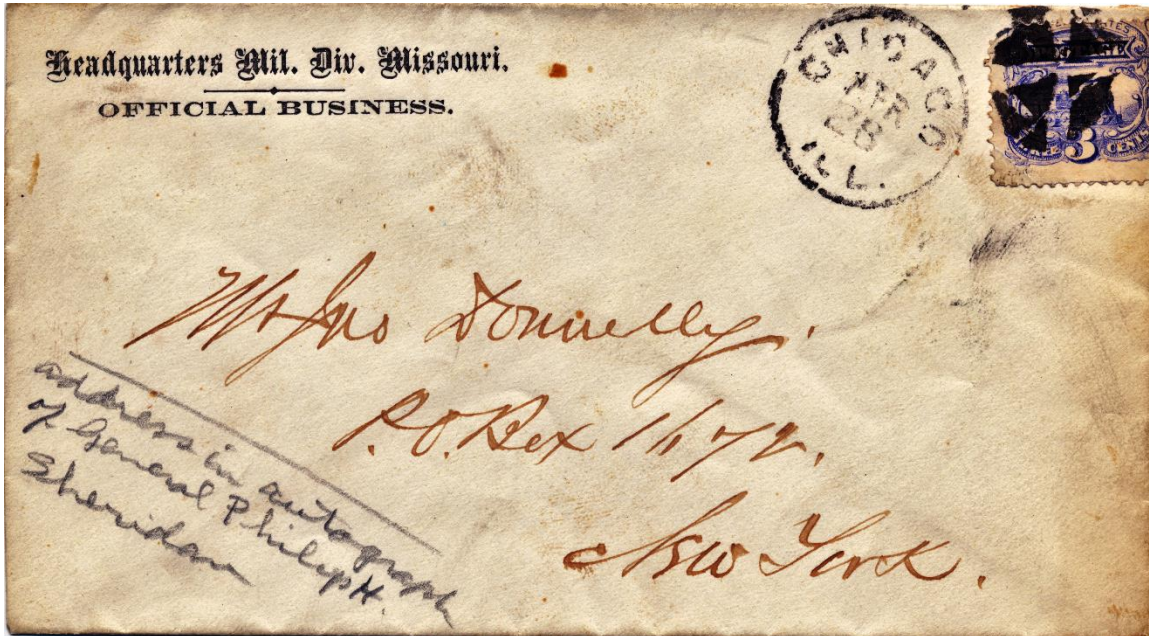 Headquarters Mil. Div. Missouri.
OFFICIAL BUSINESS.
CHICAGO
APR
28
ILL.
POSTAGE
3
CENTS
Mr Jno Donnelly.
P.O. Box 1672.
New York.
address in autograph
of General Philip H.
Sheridan